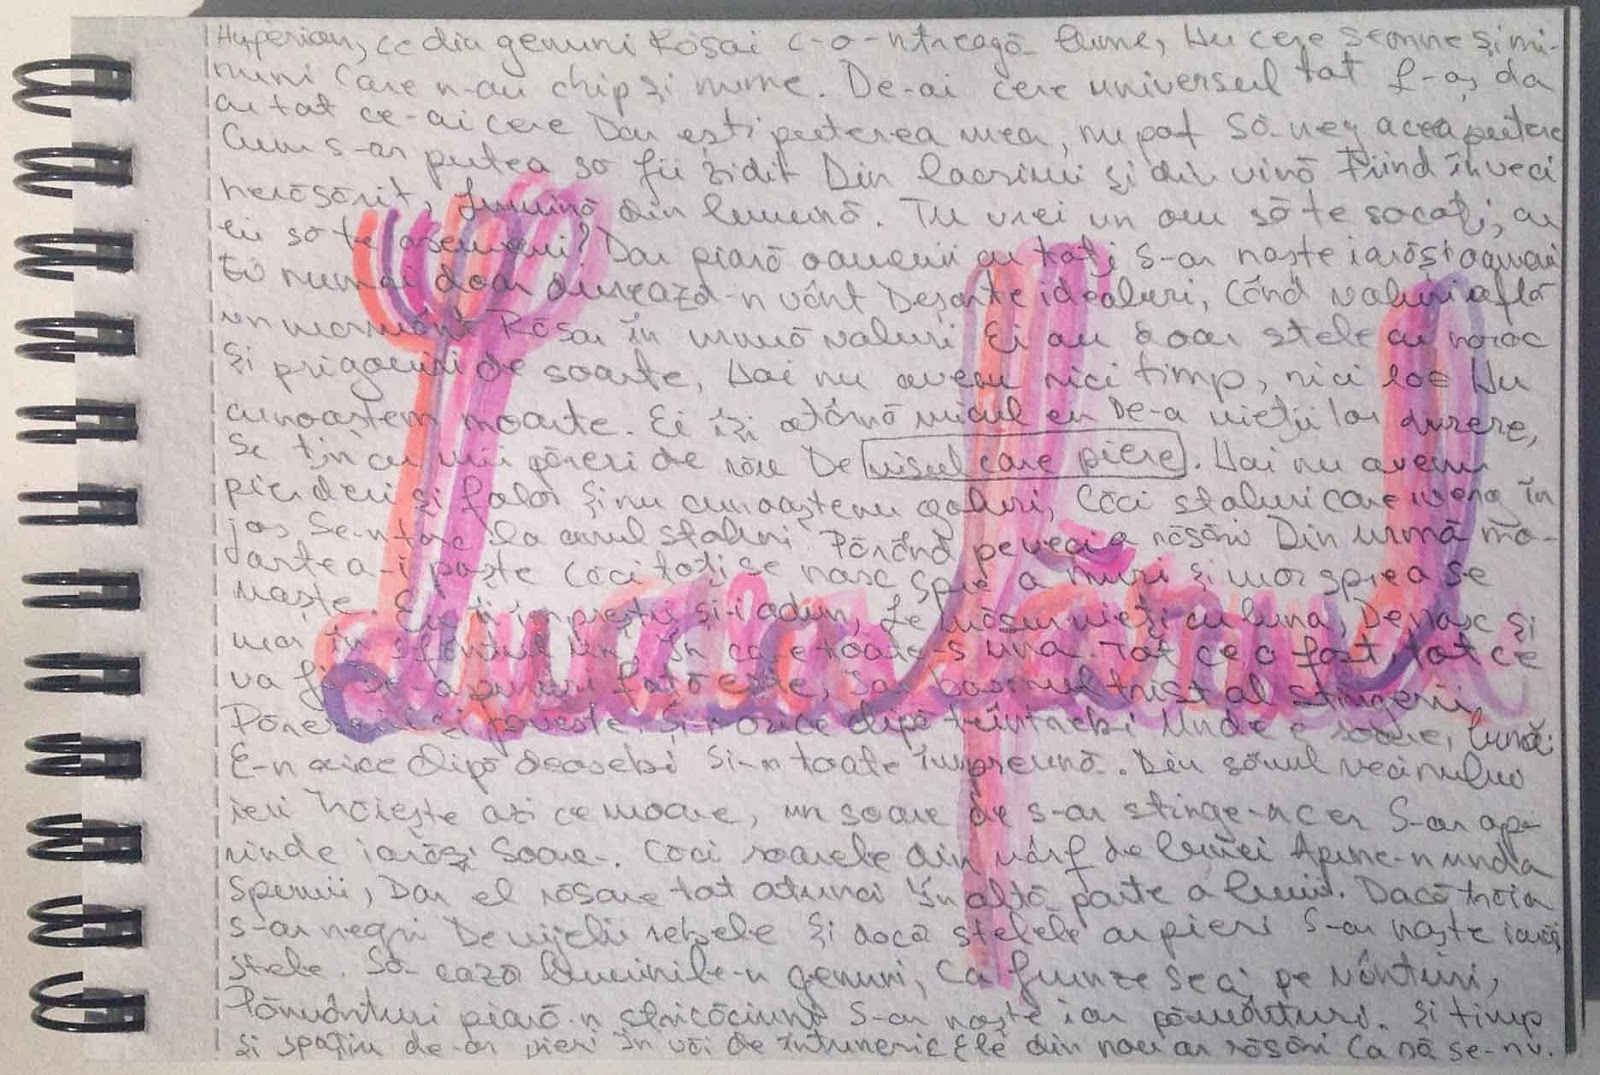 Hyperion, ce din genuni Răsai c-o-ntreagă lume, Nu cere semne și mi-
nuni Care n-au chip și nume. De-ai cere universul tot L-aș da
cu tot ce-ai cere Dar ești puterea mea, nu pot Să-neg acea putere
Cum s-ar putea să fii zidit Din lacrimi și din vină Fiind în veci
nerăsărit, Lumină din lumină. Tu vrei un om să te socoți, cu
ei să te asemeni? Dar piară oamenii cu toți S-ar naște iarăși oameni
Ei numai doar durează-n vânt Deșarte idealuri, Când valuri află
un mormânt Răsar în urmă valuri Ei au doar stele cu noroc
Și prigoniri de soarte, Noi nu avem nici timp, nici loc Nu
cunoaștem moarte. Ei își atârnă micul eu De-a vieții lor durere,
Se țin cu mii păreri de rău De visul care piere. Noi nu avem
pierderi și falos și nu cunoaștem goluri, Căci staluri care merg în
jos Se-ntorc la anul staluri. Părând pe veci a răsări Din urmă mo-
artea-i paște Căci toți se nasc spre a muri și mor spre a se
naște. Eu ți împrăștii și-i adun, Le măsur vieți cu luna, De nasc și
mor în sfântul un În care toate-s una. Tot ce a fost tot ce
va fi De-a pururi față este, basmul trist al stingerii
Părere și poveste. Și-n orice clipă te întrebi Unde e soare, lună:
E-n orice clipă deosebi Si-n toate împreună. Din sânul vecinului
ieri Trăiește azi ce moare, un soare de s-ar stinge-n cer S-ar apr-
rinde iarăși Soare. Căci soarele din vârf de Apune-n unda
Spumii, Dar el răsare tot atunci În altă parte a lumii. Dacă troia
s-ar negri De vijelii rebele Și dacă stelele ar pieri S-ar naște iarăși
stele. Să cază luminile-n genuni, Ca frunze seci pe vânturi,
Pământuri piară-n stricăciuni S-ar naște iar pământuri. Și timp
și spațiu de-ar pieri În văi de întuneric Ele din nou ar răsări Ca nă se-nv.
Luceafărul